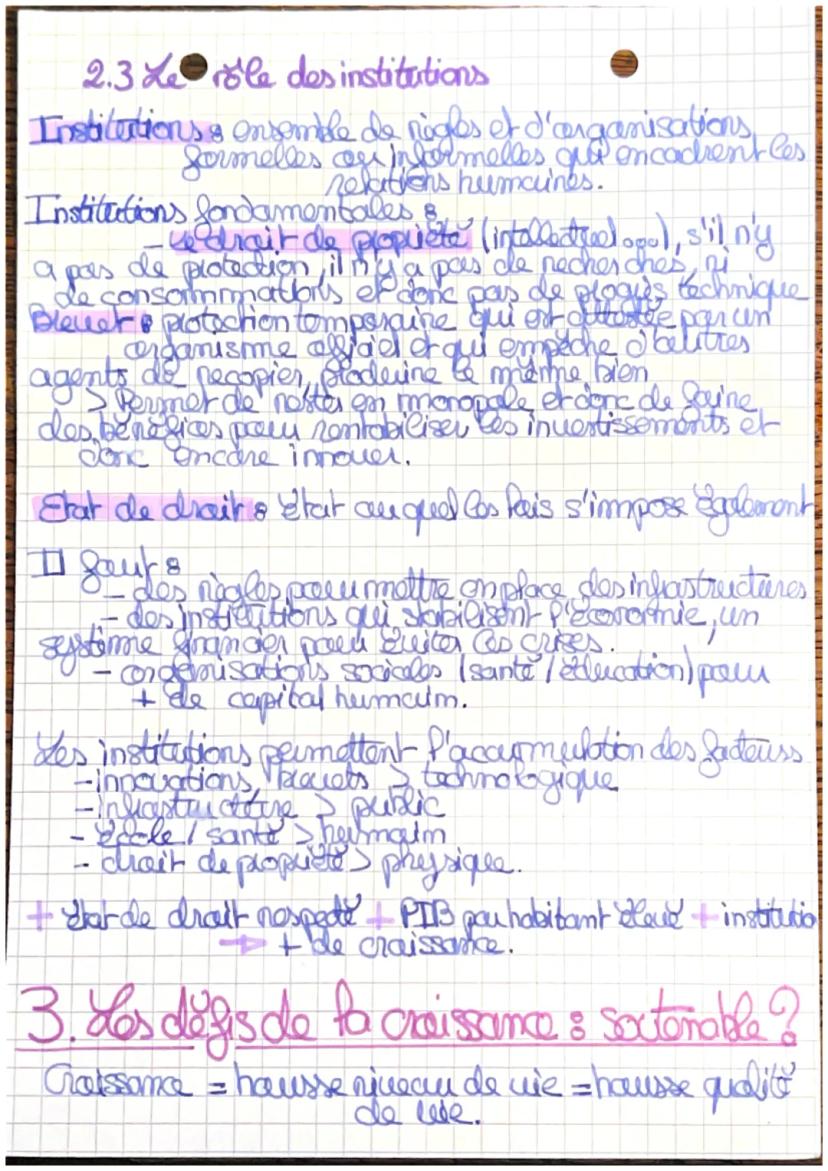 2.3 Le rôle des institutions
Institutions : ensemble de règles et d'organisations
formelles ou informelles qui encadrent les
relations humaines.
Institutions fondamentales :
- le droit de propiété (intellectuel ogol), s'il n'y
a pas de protection, il n'y a pas de recherches, ni
de consommations et donc pas de progrès technique
Brevet : protection temporaire qui est attestée par un
organisme officiel et qui empêche d'autres
agents de recopier, produire le même bien
> Permet de rester en monopole et donc de faire
des bénéfices pour rentabiliser les investissements et
donc encore innover.
Etat de droit : état auquel les lois s'impose également
Il faut :
- des règles pour mettre en place des infrastructures
- des institutions qui stabilisent l'économie, un
système financier pour éviter les crises.
- organisations sociales (santé / éducation) pour
+ de capital humain.
Les institutions permettent l'accumulation des facteurs
- innovations, brevets > technologique
- infrastructure > public
- école / santé > humain
- droit de propriété > physique.
+ état de droit respecté + PIB par habitant élevé + institutio
→ + de croissance.
3. Les défis de la croissance : soutenable ?
Croissance = hausse niveau de vie = hausse qualité
de vie.